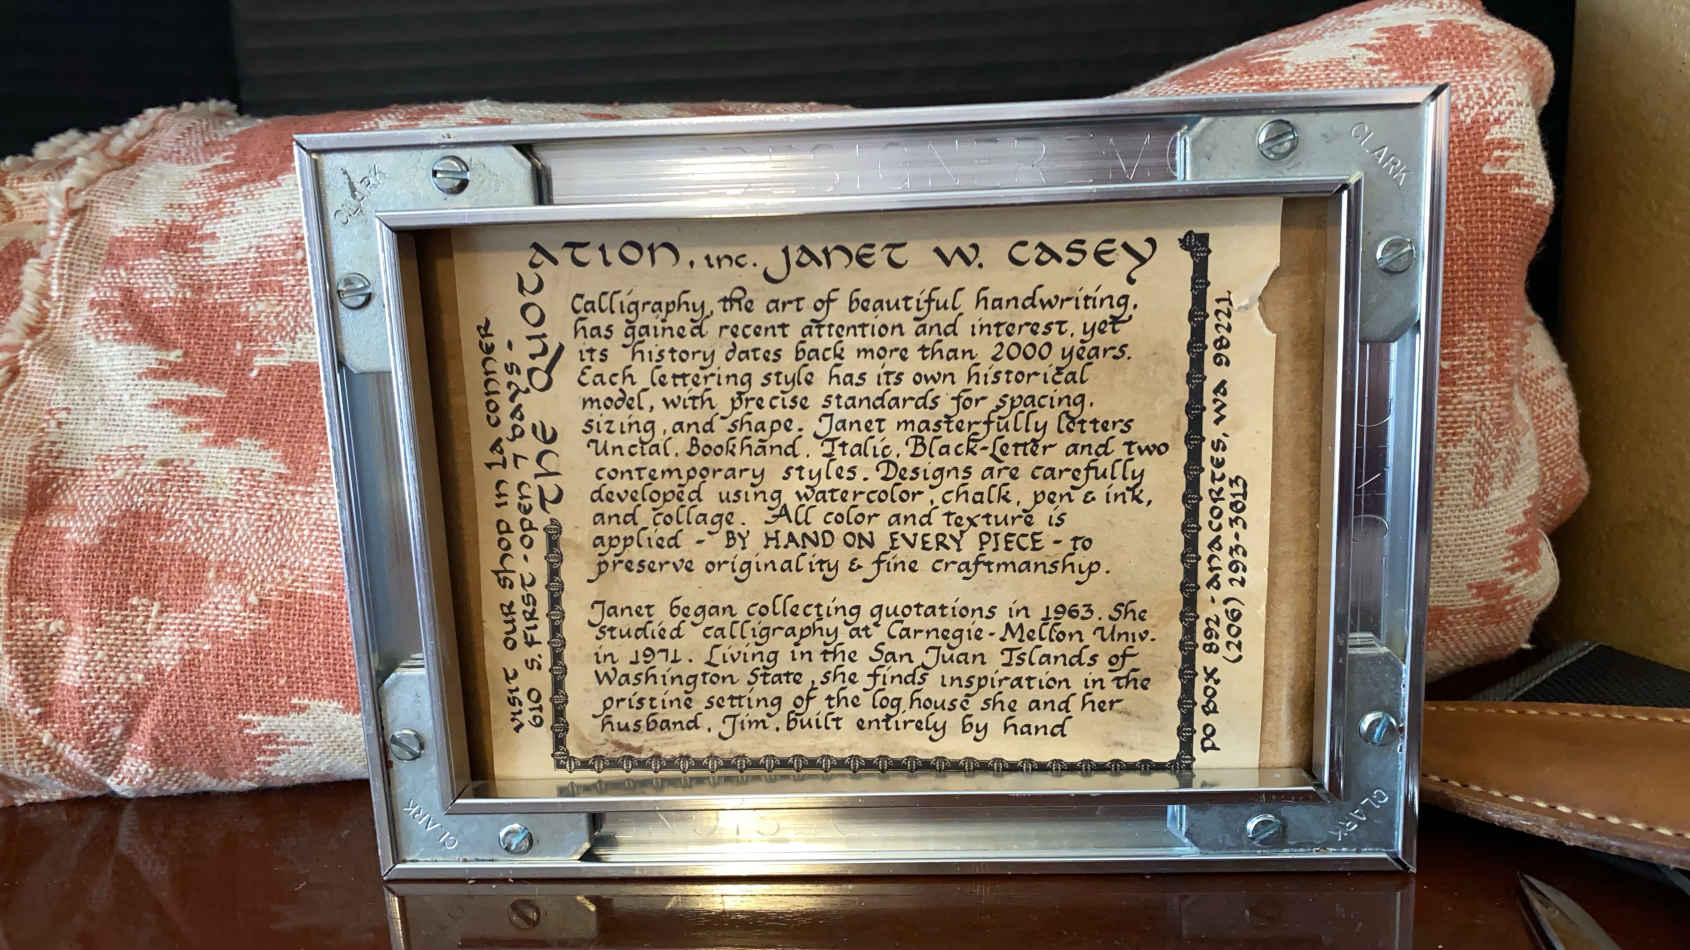 VISIT OUR SHOP IN LA CONNER
610 S. FIRST - OPEN 7 DAYS -
THE QUOTATION, INC. JANET W. CASEY
Calligraphy, the art of beautiful handwriting,
has gained recent attention and interest, yet
its history dates back more than 2000 years.
Each lettering style has its own historical
model, with precise standards for spacing,
sizing, and shape. Janet masterfully letters
Uncial, Bookhand, Italic, Black-Letter and two
contemporary styles. Designs are carefully
developed using watercolor, chalk, pen & ink,
and collage. All color and texture is
applied - BY HAND ON EVERY PIECE - to
preserve originality & fine craftmanship.
Janet began collecting quotations in 1963. She
studied calligraphy at Carnegie-Mellon Univ.
in 1971. Living in the San Juan Islands of
Washington State, she finds inspiration in the
pristine setting of the log house she and her
husband, Jim, built entirely by hand
PO BOX 892 - ANACORTES, WA 98221
(206) 293-3013
CLARK
DESIGNER
CLARK
CLARK
CLARK